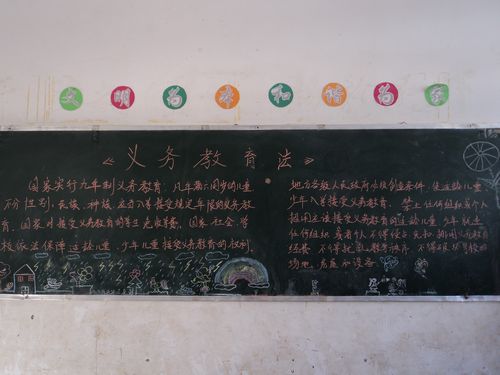 文明为本和谐为全
《义务教育法》
国家实行九年制义务教育。凡年满六周岁的儿童
不分性别、民族、种族，应当入学接受规定年限的义务教
育。国家对接受义务教育的学生免收学费。国家、社会、学
校依法保障适龄儿童、少年儿童接受义务教育的权利。
地方各级人民政府应当创造条件，使适龄儿童、
少年入学接受义务教育。禁止任何组织或个人
招用应该接受义务教育的适龄儿童、少年就业
任何组织或者个人不得侵占、克扣、挪用义务教育
经费，不得扰乱教学秩序，不得破坏学校的
场地、房屋和设备。